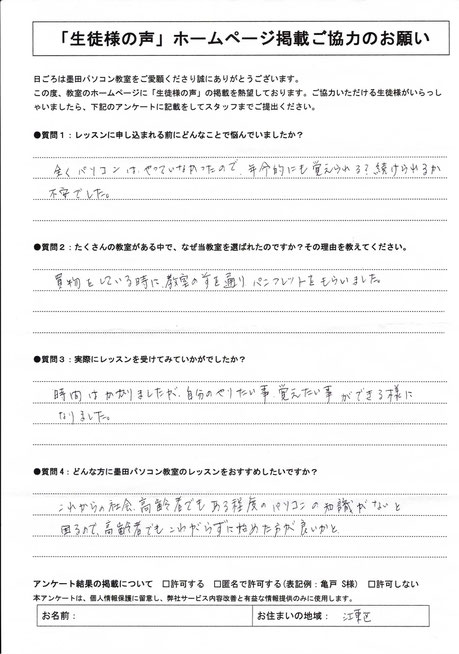 「生徒様の声」ホームページ掲載ご協力のお願い
日ごろは墨田パソコン教室をご愛顧くださり誠にありがとうございます。
この度、教室のホームページに「生徒様の声」の掲載を熱望しております。ご協力いただける生徒様がいらっし
ゃいましたら、下記のアンケートに記載をしてスタッフまでご提出ください。
●質問1：レッスンに申し込まれる前にどんなことで悩んでいましたか？
全くパソコンはやっていなかったので、年令的にも覚えられる？続けられるか
不安でした。
●質問2：たくさんの教室がある中で、なぜ当教室を選ばれたのですか？その理由を教えてください。
買物をしている時に、教室の前を通りパンフレットをもらいました。
●質問3：実際にレッスンを受けてみていかがでしたか？
時間はかかりましたが、自分のやりたい事、覚えたい事ができる様に
なりました。
●質問4：どんな方に墨田パソコン教室のレッスンをおすすめしたいですか？
これからの社会、高齢者でもある程度のパソコンの知識がないと
困るので、高齢者でもこわがらずに始めた方が良いかと
アンケート結果の掲載について　□許可する　□匿名で許可する(表記例：亀戸 S様)　□許可しない
本アンケートは、個人情報保護に留意し、弊社サービス内容改善と有益な情報提供のみに使用します。
お名前：　お住まいの地域：　江東区